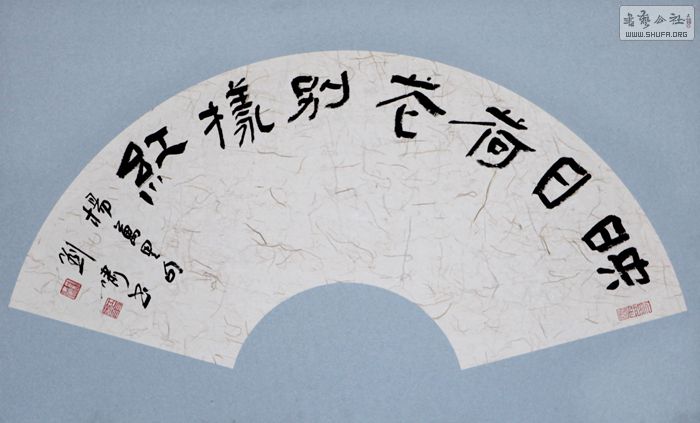 映日荷花別樣紅
楊萬里句
劉
書
書艺公社
WWW.SHUFA.ORG